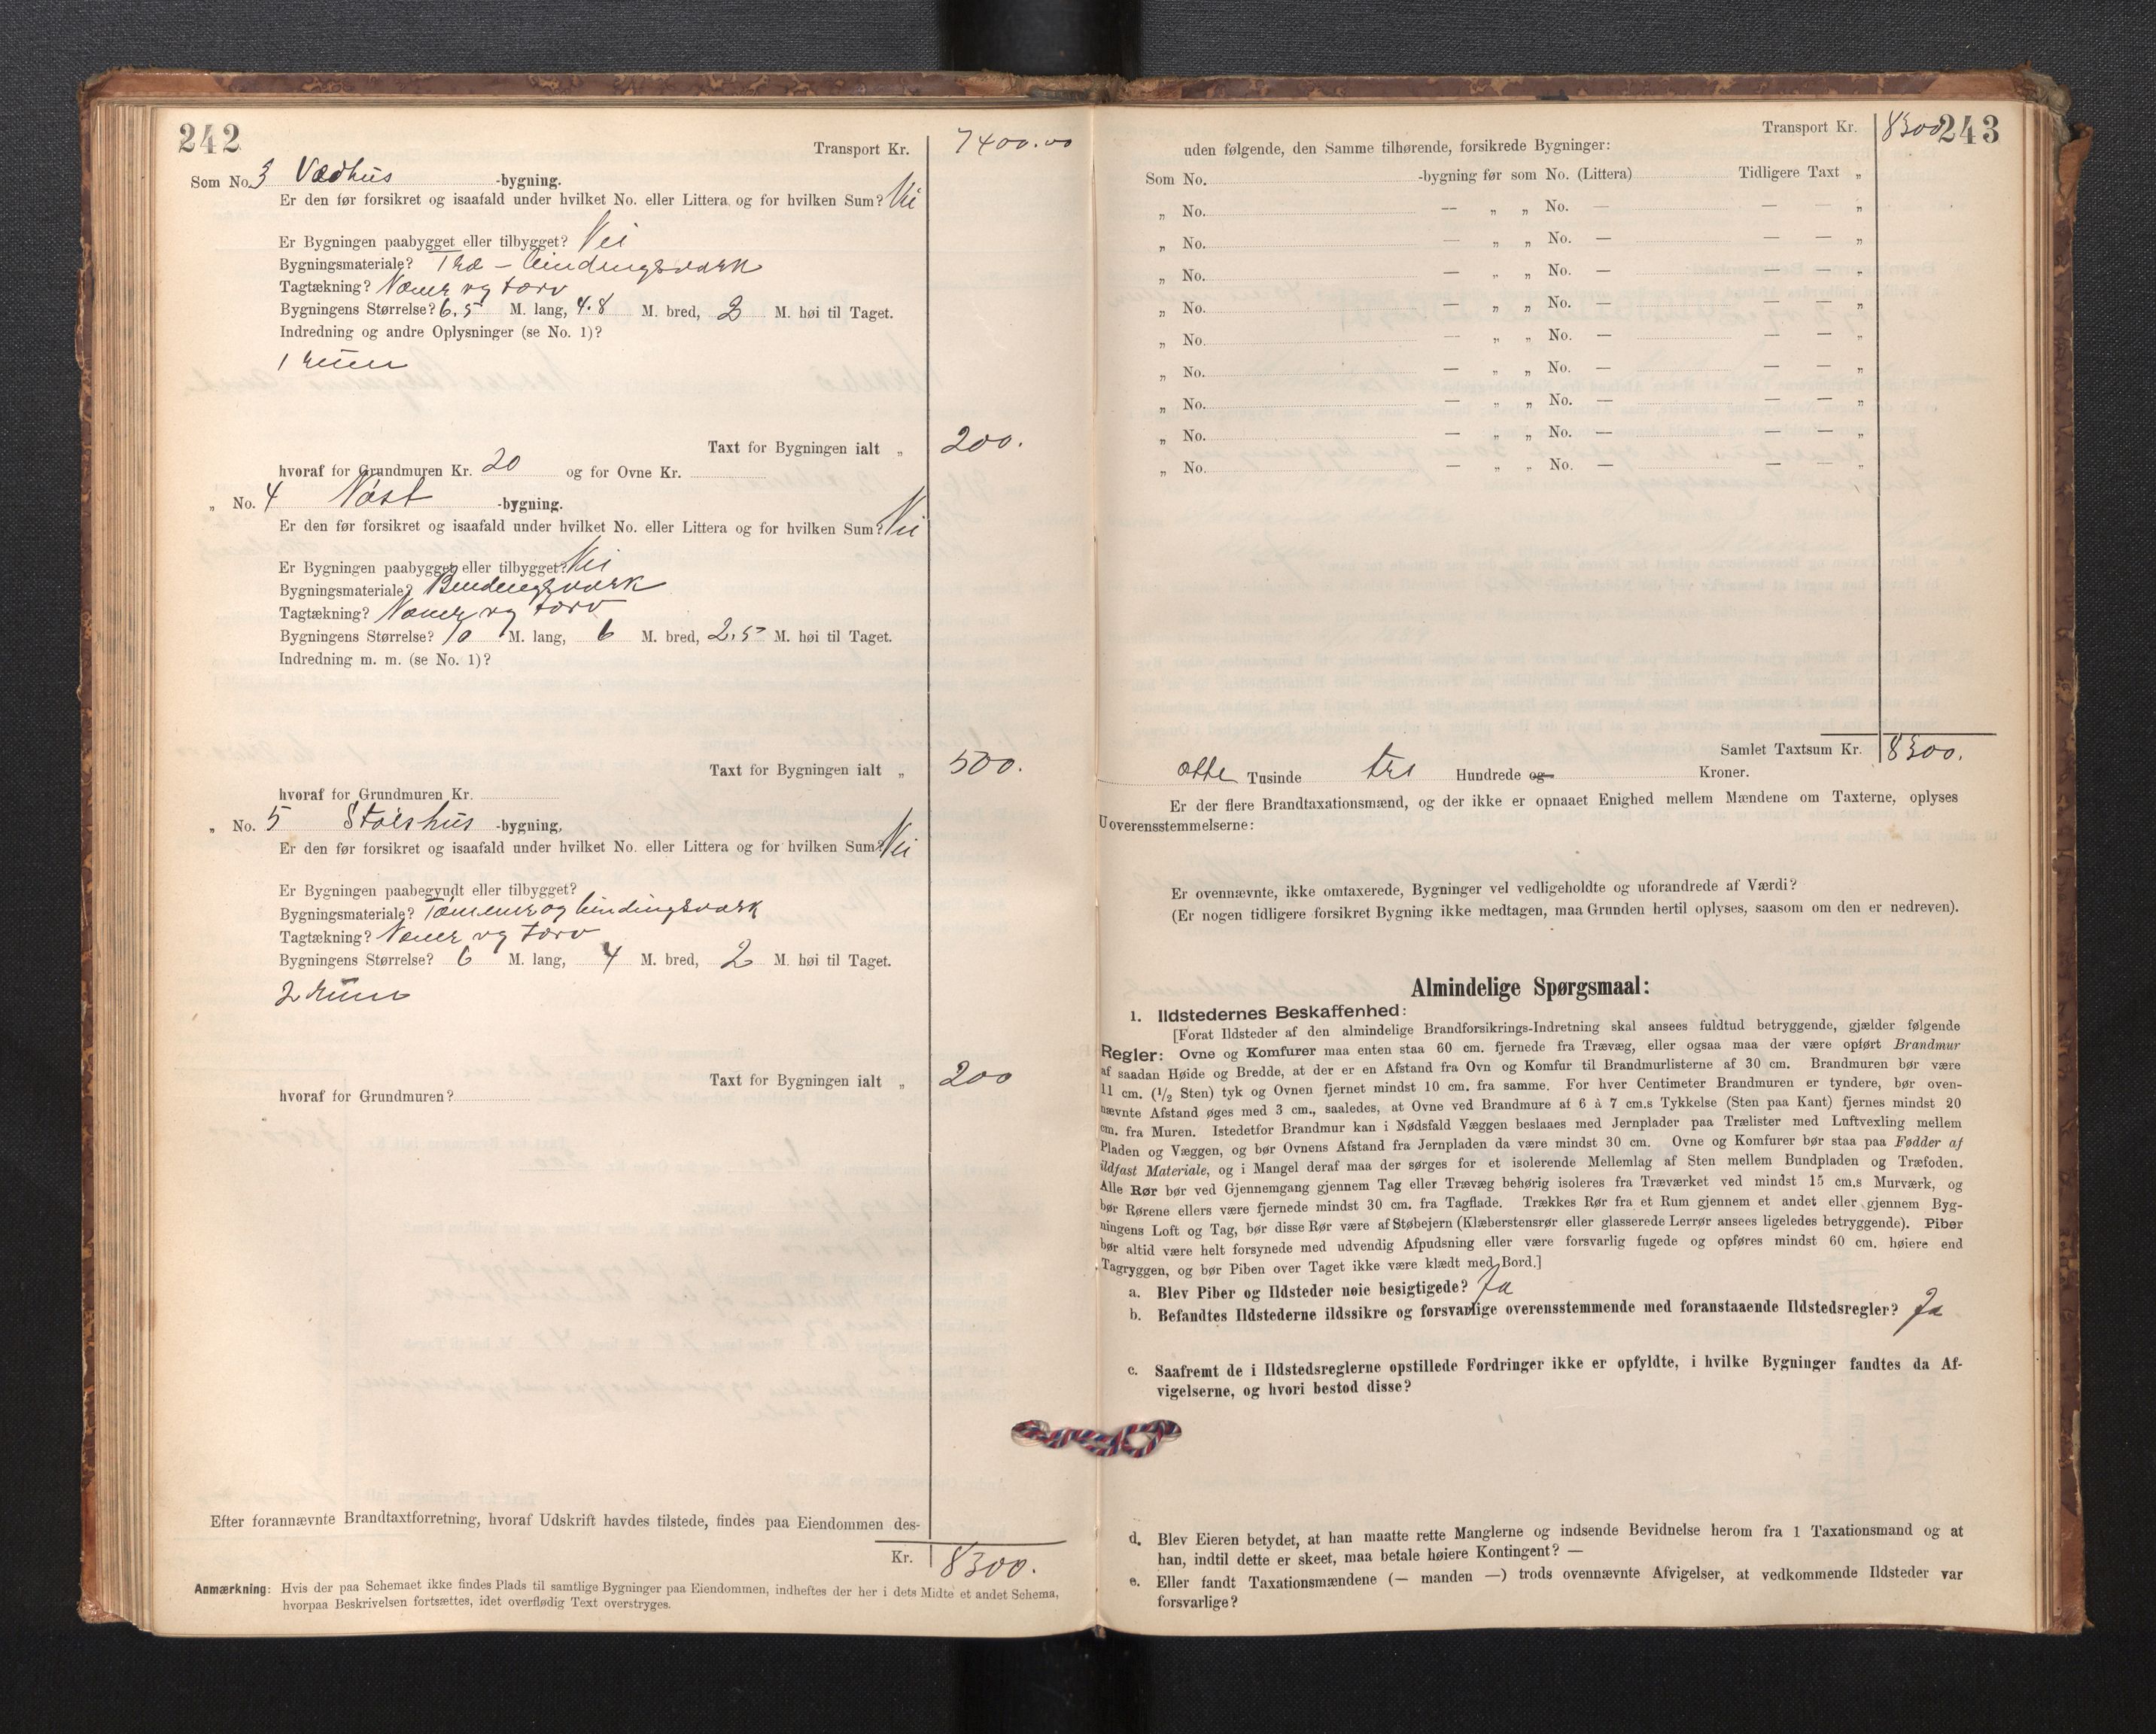 242
Transport Kr. 7400.00
Som No. 3 Vedhus -bygning.
Er den før forsikret og isaafald under hvilket No. eller Littera og for hvilken Sum? Nei
Er Bygningen paabygget eller tilbygget? Nei
Bygningsmateriale? Træ – bindingsværk
Tagtækning? Næver og torv
Bygningens Størrelse? 6,5 M. lang, 4.8 M. bred, 3 M. høi til Taget.
Indredning og andre Oplysninger (se No. 1)?
1 rum
Taxt for Bygningen ialt „ 200.
hvoraf for Grundmuren Kr. 20 og for Ovne Kr.
„ No. 4 Nøst -bygning.
Er den før forsikret og isaafald under hvilket No. eller Littera og for hvilken Sum? Nei
Er Bygningen paabygget eller tilbygget? Nei
Bygningsmateriale? Bindingsværk
Tagtækning? Næver og torv
Bygningens Størrelse? 10 M. lang, 6 M. bred, 2,5 M. høi til Taget.
Indredning m. m. (se No. 1)?
Taxt for Bygningen ialt „ 500.
hvoraf for Grundmuren Kr.
„ No. 5 Støls hus -bygning.
Er den før forsikret og isaafald under hvilket No. eller Littera og for hvilken Sum? Nei
Er Bygningen paabegyndt eller tilbygget?
Bygningsmateriale? Tømmer og bindingsværk
Tagtækning? Næver og torv
Bygningens Størrelse? 6 M. lang, 4 M. bred, 2 M. høi til Taget.
2 rum
Taxt for Bygningen ialt „ 200
hvoraf for Grundmuren?
Efter forannævnte Brandtaxtforretning, hvoraf Udskrift havdes tilstede, findes paa Eiendommen des-
Kr. 8300.
Anmærkning: Hvis der paa Schemaet ikke findes Plads til samtlige Bygninger paa Eiendommen, indheftes der her i dets Midte et andet Schema,
hvorpaa Beskrivelsen fortsættes, idet overflødig Text overstryges.
243
Transport Kr. 8300
uden følgende, den Samme tilhørende, forsikrede Bygninger:
Som No. -bygning før som No. (Littera) Tidligere Taxt „
„ No. — „ „ No. — — — „
„ No. — „ „ No. — — — „
„ No. — „ „ No. — — — „
„ No. — „ „ No. — — — „
„ No. — „ „ No. — — — „
„ No. — „ „ No. — — — „
„ No. — „ „ No. — — — „
„ No. — „ „ No. — — — „
„ No. — „ „ No. — — — „
Samlet Taxtsum Kr. 8300.
otte Tusinde tre Hundrede og Kroner.
Er der flere Brandtaxationsmænd, og der ikke er opnaaet Enighed mellem Mændene om Taxterne, oplyses
Uoverensstemmelserne:
Er ovennævnte, ikke omtaxerede, Bygninger vel vedligeholdte og uforandrede af Værdi?
(Er nogen tidligere forsikret Bygning ikke medtagen, maa Grunden hertil oplyses, saasom om den er nedreven).
Almindelige Spørgsmaal:
1. Ildstedernes Beskaffenhed:
[Forat Ildsteder af den almindelige Brandforsikrings-Indretning skal ansees fuldtud betryggende, gjælder følgende
Regler: Ovne og Komfurer maa enten staa 60 cm. fjernede fra Trævæg, eller ogsaa maa der være opført Brandmur
af saadan Høide og Bredde, at der er en Afstand fra Ovn og Komfur til Brandmurlisterne af 30 cm. Brandmuren bør være
11 cm. (1/2 Sten) tyk og Ovnen fjernet mindst 10 cm. fra samme. For hver Centimeter Brandmuren er tyndere, bør oven-
nævnte Afstand øges med 3 cm., saaledes, at Ovne ved Brandmure af 6 à 7 cm.s Tykkelse (Sten paa Kant) fjernes mindst 20
cm. fra Muren. Istedetfor Brandmur kan i Nødsfald Væggen beslaaes med Jernplader paa Trælister med Luftvexling mellem
Pladen og Væggen, og bør Ovnens Afstand fra Jernpladen da være mindst 30 cm. Ovne og Komfurer bør staa paa Fødder af
ildfast Materiale, og i Mangel deraf maa der sørges for et isolerende Mellemlag af Sten mellem Bundpladen og Træfoden.
Alle Rør bør ved Gjennemgang gjennem Tag eller Trævæg behørig isoleres fra Træværket ved mindst 15 cm.s Murværk, og
bør Rørene ellers være fjernede mindst 30 cm. fra Tagflade. Trækkes Rør fra et Rum gjennem et andet eller gjennem Byg-
ningens Loft og Tag, bør disse Rør være af Støbejern (Klæberstensrør eller glasserede Lerrør ansees ligeledes betryggende). Piber
bør altid være helt forsynede med udvendig Afpudsning eller være forsvarlig fugede og opføres mindst 60 cm. høiere end
Tagryggen, og bør Piben over Taget ikke være klædt med Bord.]
a. Blev Piber og Ildsteder nøie besigtigede? Ja
b. Befandtes Ildstederne ildssikre og forsvarlige overensstemmende med foranstaaende Ildstedsregler? Ja
c. Saafremt de i Ildstedsreglerne opstillede Fordringer ikke er opfyldte, i hvilke Bygninger fandtes da Af-
vigelserne, og hvori bestod disse?
d. Blev Eieren betydet, at han maatte rette Manglerne og indsende Bevidnelse herom fra 1 Taxationsmand og at
han, indtil dette er skeet, maa betale høiere Kontingent? —
e. Eller fandt Taxationsmændene (— manden —) trods ovennævnte Afvigelser, at vedkommende Ildsteder var
forsvarlige?